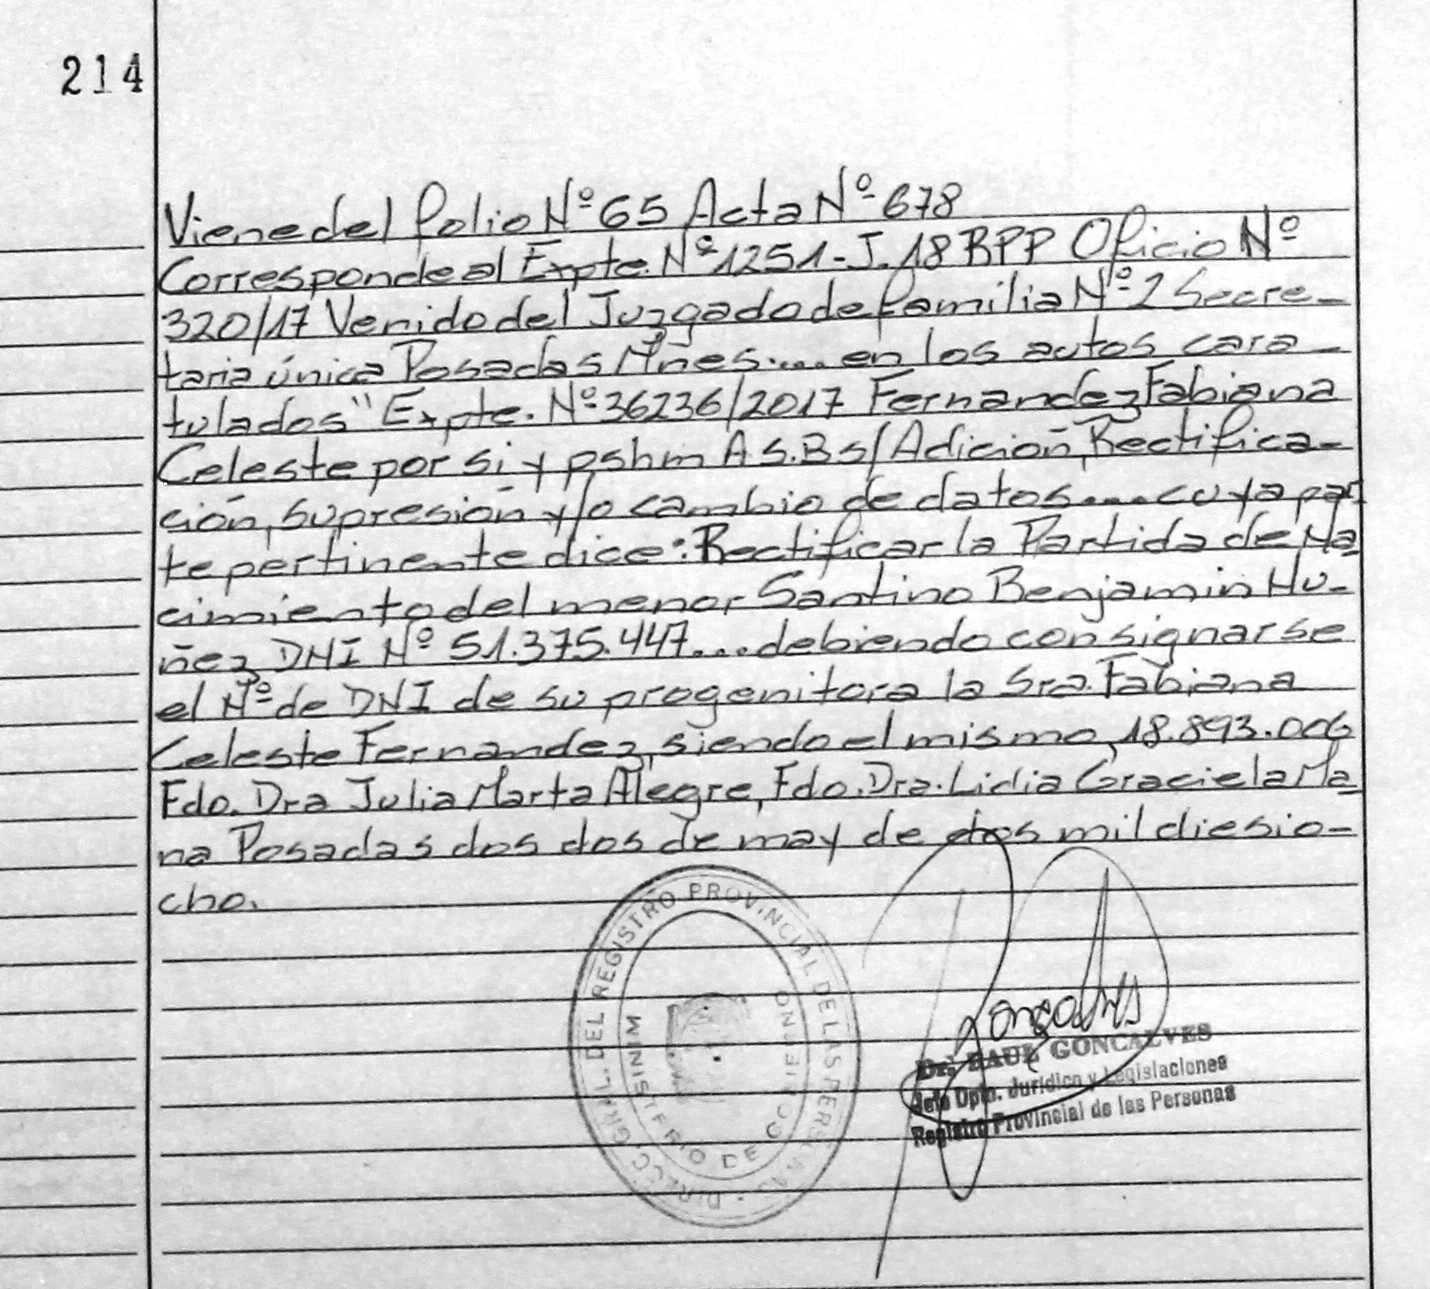 214
Viene del folio Nº 65 Acta Nº 678
Corresponde al Expte. Nº 1251-J.18 RPP Oficio Nº
320/17 Venido del Juzgado de familia Nº 2 Secre-
taria única Posadas Mnes.... en los autos cara-
tulados "Expte. Nº 36236/2017 Fernandez Fabiana
Celeste por si y pshm A S.B s/ Adición, Rectifica-
ción, supresión y/o cambio de datos.... cuya par-
te pertinente dice: Rectificar la Partida de Na-
cimiento del menor Santino Benjamin Nu-
ñez DNI Nº 51.375.447... debiendo consignarse
el Nº de DNI de su progenitora la Sra. Fabiana
Celeste Fernandez, siendo el mismo, 18.893.006
Fdo. Dra Julia Marta Alegre, Fdo. Dra. Lidia Graciela Ma-
na Posadas dos dos de may de dos mil diesio-
cho.
DIRECC. GRAL. DEL REGISTRO PROVINCIAL DE LAS PERSONAS
MINISTERIO DE GOBIERNO
Goncalves
Dr. RAUL GONCALVES
Jefe Dpto. Jurídico y Legislaciones
Registro Provincial de las Personas